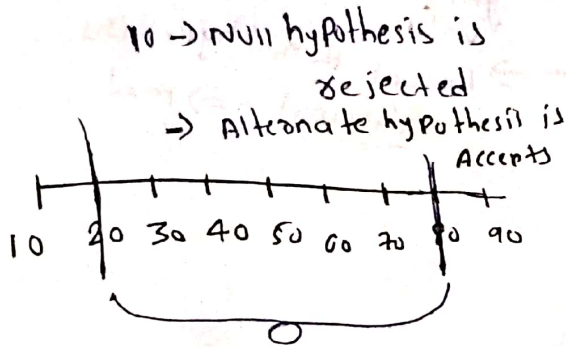 10 → Null hypothesis is
rejected
→ Alternate hypothesis is
Accepts
10 20 30 40 50 60 70 80 90